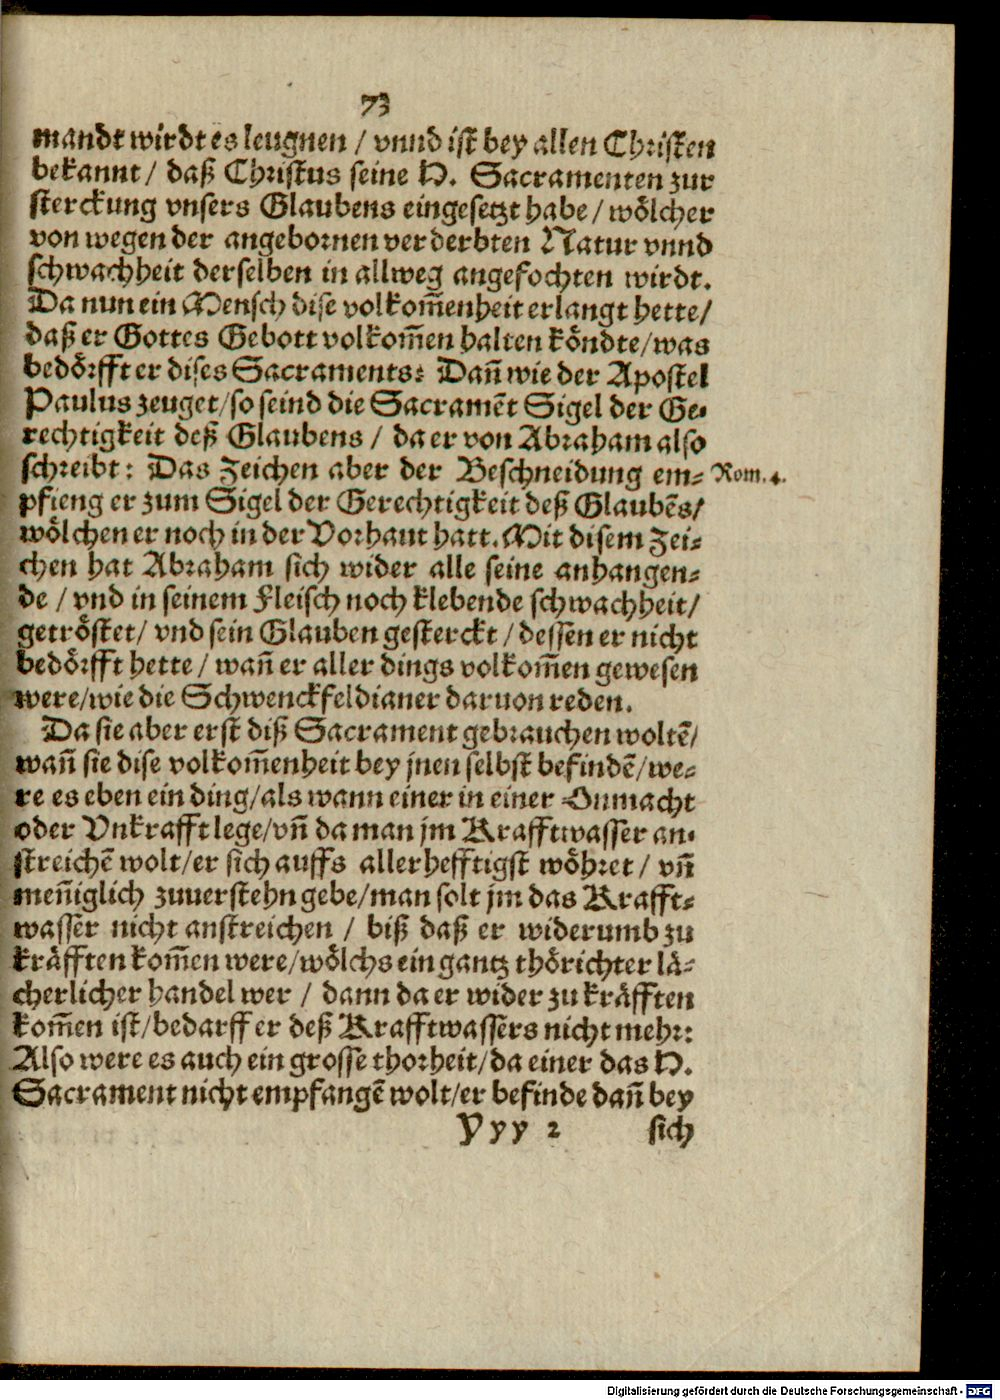 73
mandt wirdt es leugnen / vnnd ist bey allen Christen
bekannt / daß Christus seine H. Sacramenten zur
sterckung vnsers Glaubens eingesetzt habe / wölcher
von wegen der angebornen verderbten Natur vnnd
schwachheit derselben in allweg angefochten wirdt.
Da nun ein Mensch dise volkom̃enheit erlangt hette /
daß er Gottes Gebott volkom̃en halten köndte / was
bedörfft er dises Sacraments: Dañ wie der Apostel
Paulus zeuget / so seind die Sacramēt Sigel der Ge-
rechtigkeit deß Glaubens / da er von Abraham also
schreibt: Das Zeichen aber der Beschneidung em= Rom. 4.
pfieng er zum Sigel der Gerechtigkeit deß Glaubēs /
wölchen er noch in der Vorhaut hatt. Mit disem Zei=
chen hat Abraham sich wider alle seine anhangen=
de / vnd in seinem Fleisch noch klebende schwachheit /
getröstet / vnd sein Glauben gesterckt / dessen er nicht
bedörfft hette / wañ er aller dings volkom̃en gewesen
were / wie die Schwenckfeldianer daruon reden.
Da sie aber erst diß Sacrament gebrauchen woltē /
wañ sie dise volkom̃enheit bey jnen selbst befindē / we=
re es eben ein ding / als wann einer in einer Onmacht
oder Vnkrafft lege / vñ da man jm Krafftwasser an-
streichē wolt / er sich auffs allerhefftigst wöhret / vñ
meñiglich zuuerstehn gebe / man solt jm das Krafft=
wasser nicht anstreichen / biß daß er widerumb zu
kräfften kom̃en were / wölchs ein gantz thörichter lä=
cherlicher handel wer / dann da er wider zu kräfften
kom̃en ist / bedarff er deß Krafftwassers nicht mehr:
Also were es auch ein grosse thorheit / da einer das H.
Sacrament nicht empfangē wolt / er befinde dañ bey
Yyy 2 sich
Digitalisierung gefördert durch die Deutsche Forschungsgemeinschaft - DFG